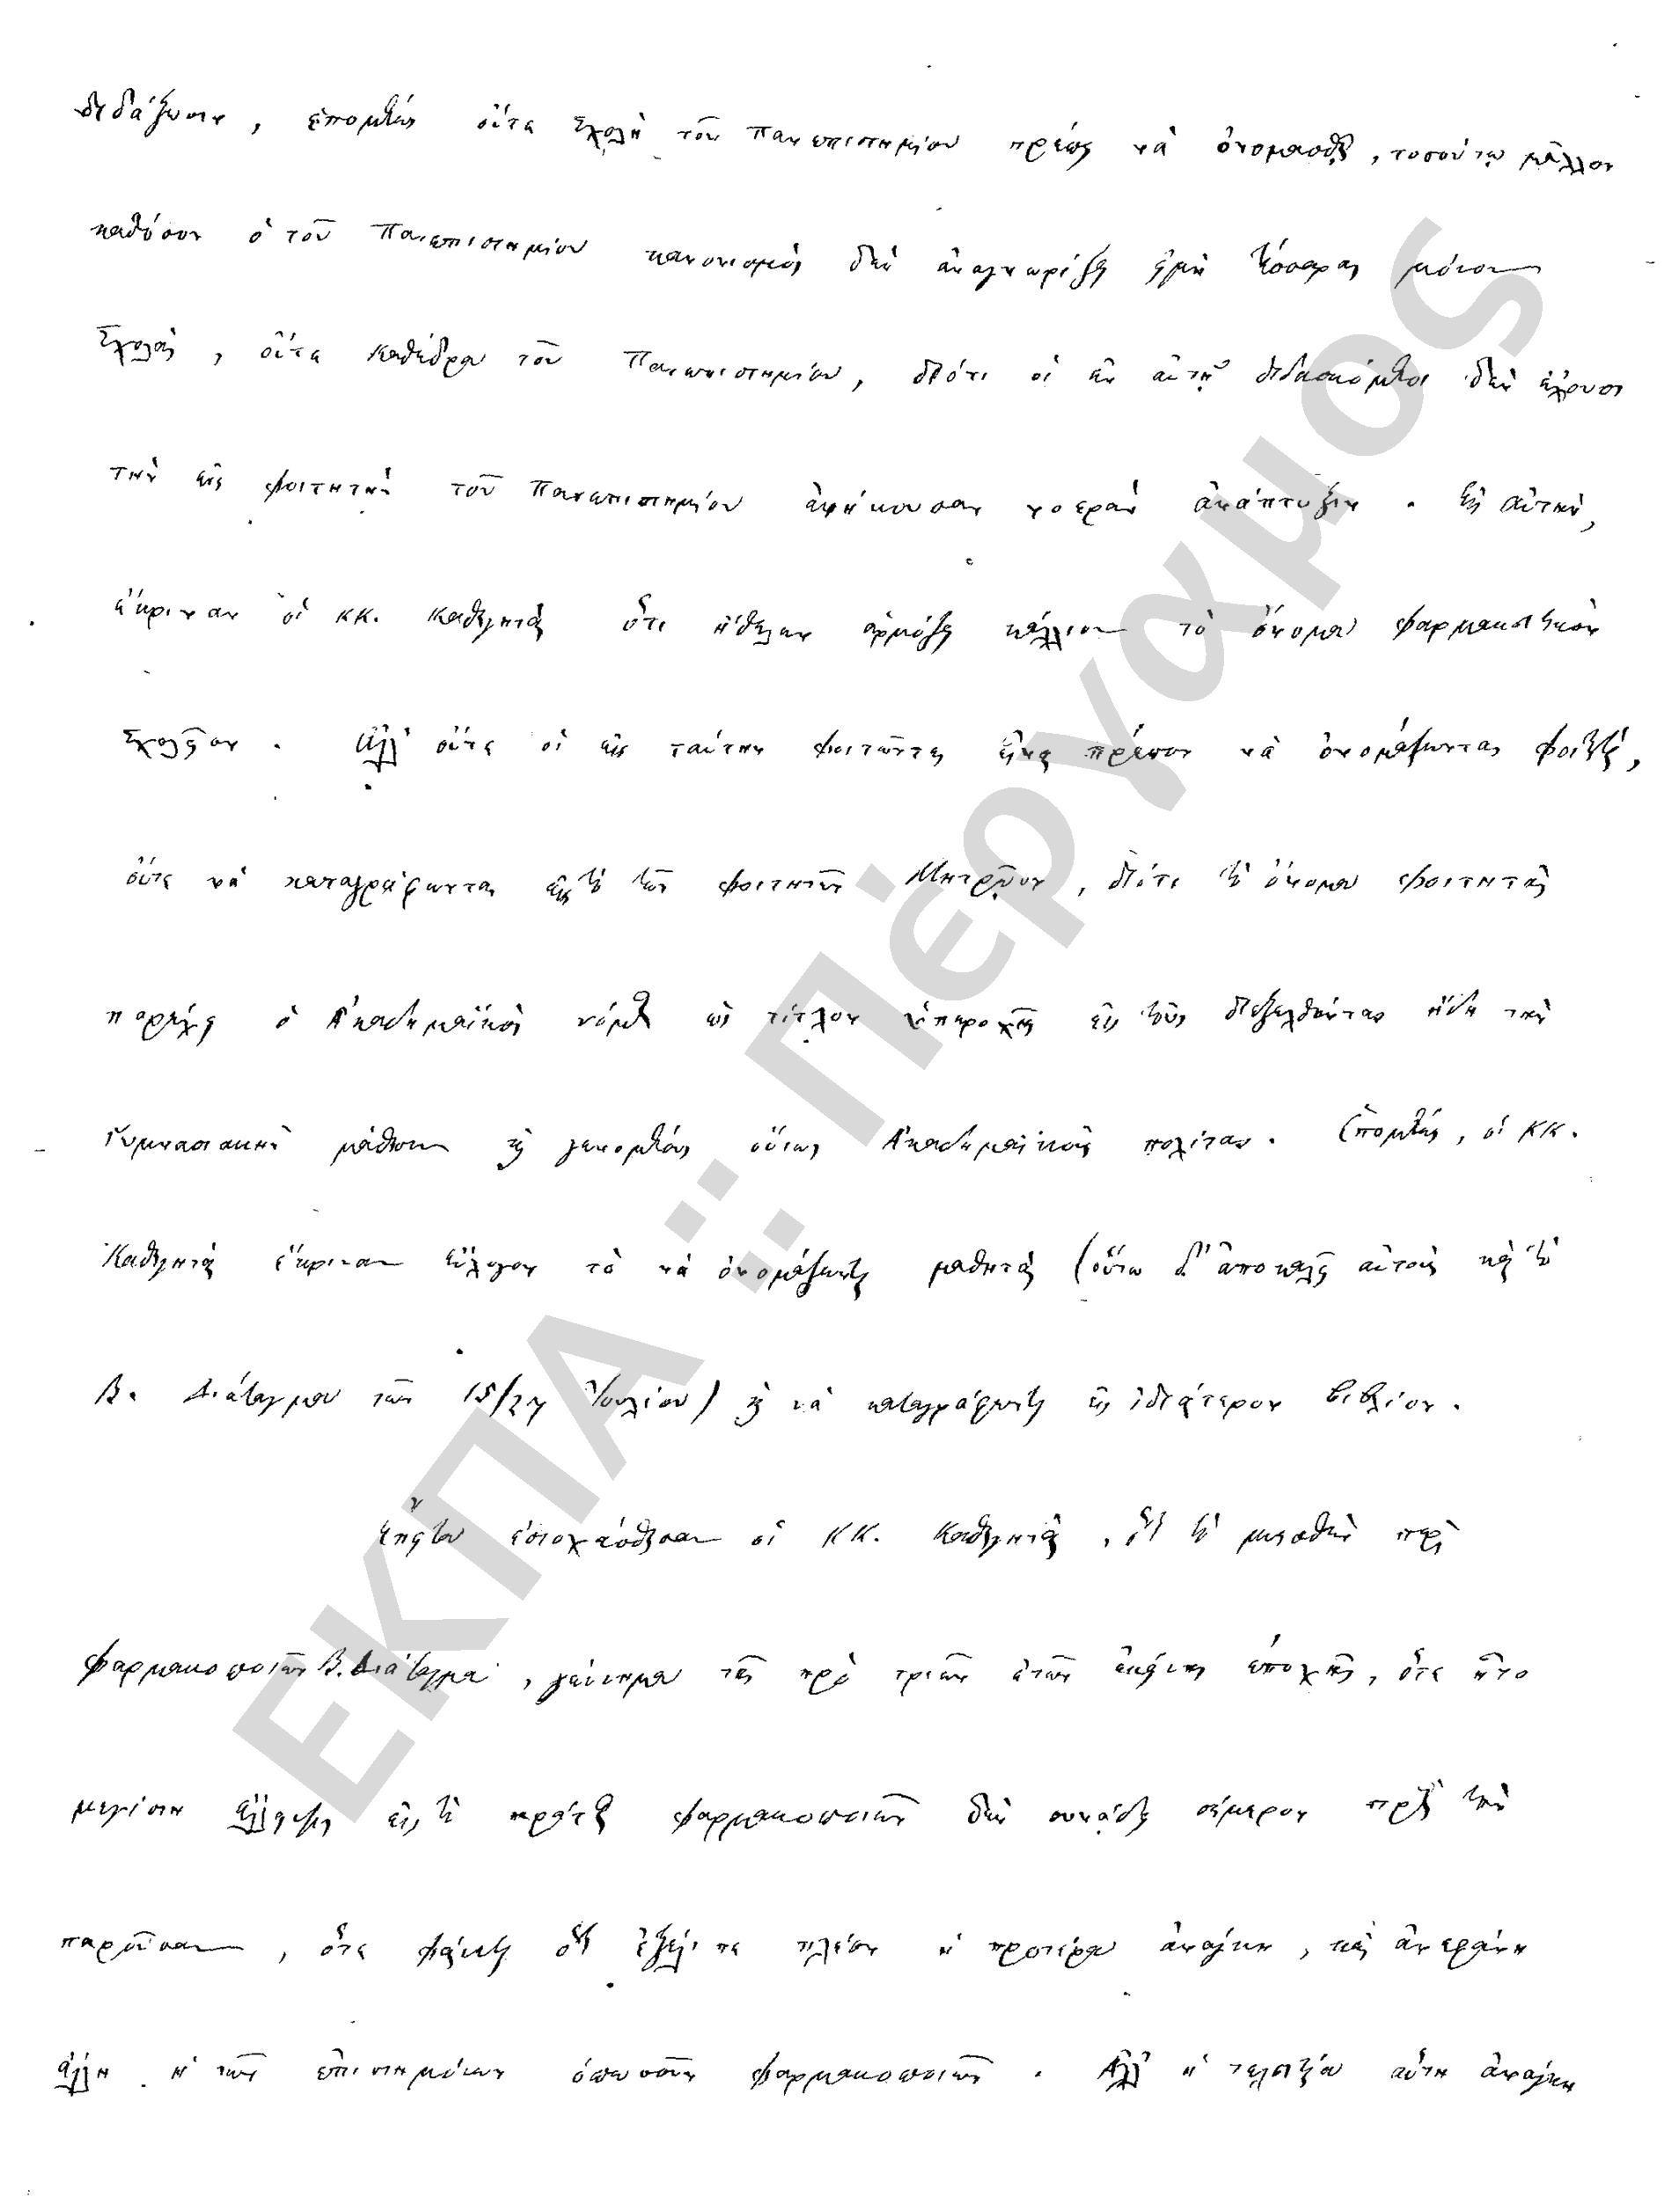 διδάξωσιν, ἑπομένως οὔτε Σχολὴ τοῦ Πανεπιστημίου πρέπει νὰ ὀνομασθῇ, τοσούτῳ μᾶλλον
καθόσον ὁ τοῦ Πανεπιστημίου κανονισμὸς δὲν ἀναγνωρίζει εἰμὴ τέσσαρας μόνον
Σχολάς, οὔτε καθέδρα τοῦ Πανεπιστημίου, διότι οἱ ἐν αὐτῇ διδασκόμενοι δὲν ἔχουσι
τὴν εἰς φοιτητὴν τοῦ Πανεπιστημίου ἀνήκουσαν νοερὰν ἀνάπτυξιν. Εἰς αὐτὴν,
ἔκριναν οἱ ΚΚ. Καθηγηταὶ ὅτι ἤθελεν ἁρμόζει κάλλιον τὸ ὄνομα φαρμακευτικὸν
Σχολεῖον. Ἀλλ' οὔτε οἱ εἰς ταύτην φοιτῶντες εἶναι πρέπον νὰ ὀνομάζωνται φοιτηταί,
οὔτε νὰ καταγράφωνται εἰς τὸ τῶν φοιτητῶν Μητρῷον, διότι τὸ ὄνομα φοιτητὰς
παρέχει ὁ Ἀκαδημαϊκὸς νόμος ὡς τίτλον ὑπεροχῆς εἰς τοὺς διεξελθόντας ἤδη τὴν
Γυμνασιακὴν μάθησιν καὶ γενομένους οὕτως Ἀκαδημαϊκοὺς πολίτας. Ἑπομένως, οἱ ΚΚ.
Καθηγηταὶ ἔκριναν εὔλογον τὸ νὰ ὀνομάζωνται μαθηταὶ (οὕτω δ' ἀποκαλεῖ αὐτοὺς καὶ τὸ
Β. Διάταγμα τῶν 15/27 Ἰουλίου) καὶ νὰ καταγράφωνται εἰς ἰδιαίτερον βιβλίον.
Ἔπειτα ἐστοχάσθησαν οἱ ΚΚ. Καθηγηταὶ, ὅτι τὸ μνησθὲν περὶ
φαρμακοποιῶν Β. Διάταγμα, γέννημα τῆς πρὸ τριῶν ἐτῶν ἐκείνης ἐποχῆς, ὅτε ἦτο
μεγίστη ἔλλειψις εἰς τὸ κράτος φαρμακοποιῶν δὲν συνᾴδει σήμερον πρὸς τὴν
παροῦσαν, ὅτε φαίνεται ὅτι ἐξέλιπε πλέον ἡ προτέρα ἀνάγκη, καὶ ἀνεφάνη
ἄλλη ἡ τῶν ἐπιστημόνων ὁπωσοῦν φαρμακοποιῶν. Ἀλλ' ἡ τελευταία αὕτη ἀνάγκη
ΕΚΠΑ :: Πέργαμος